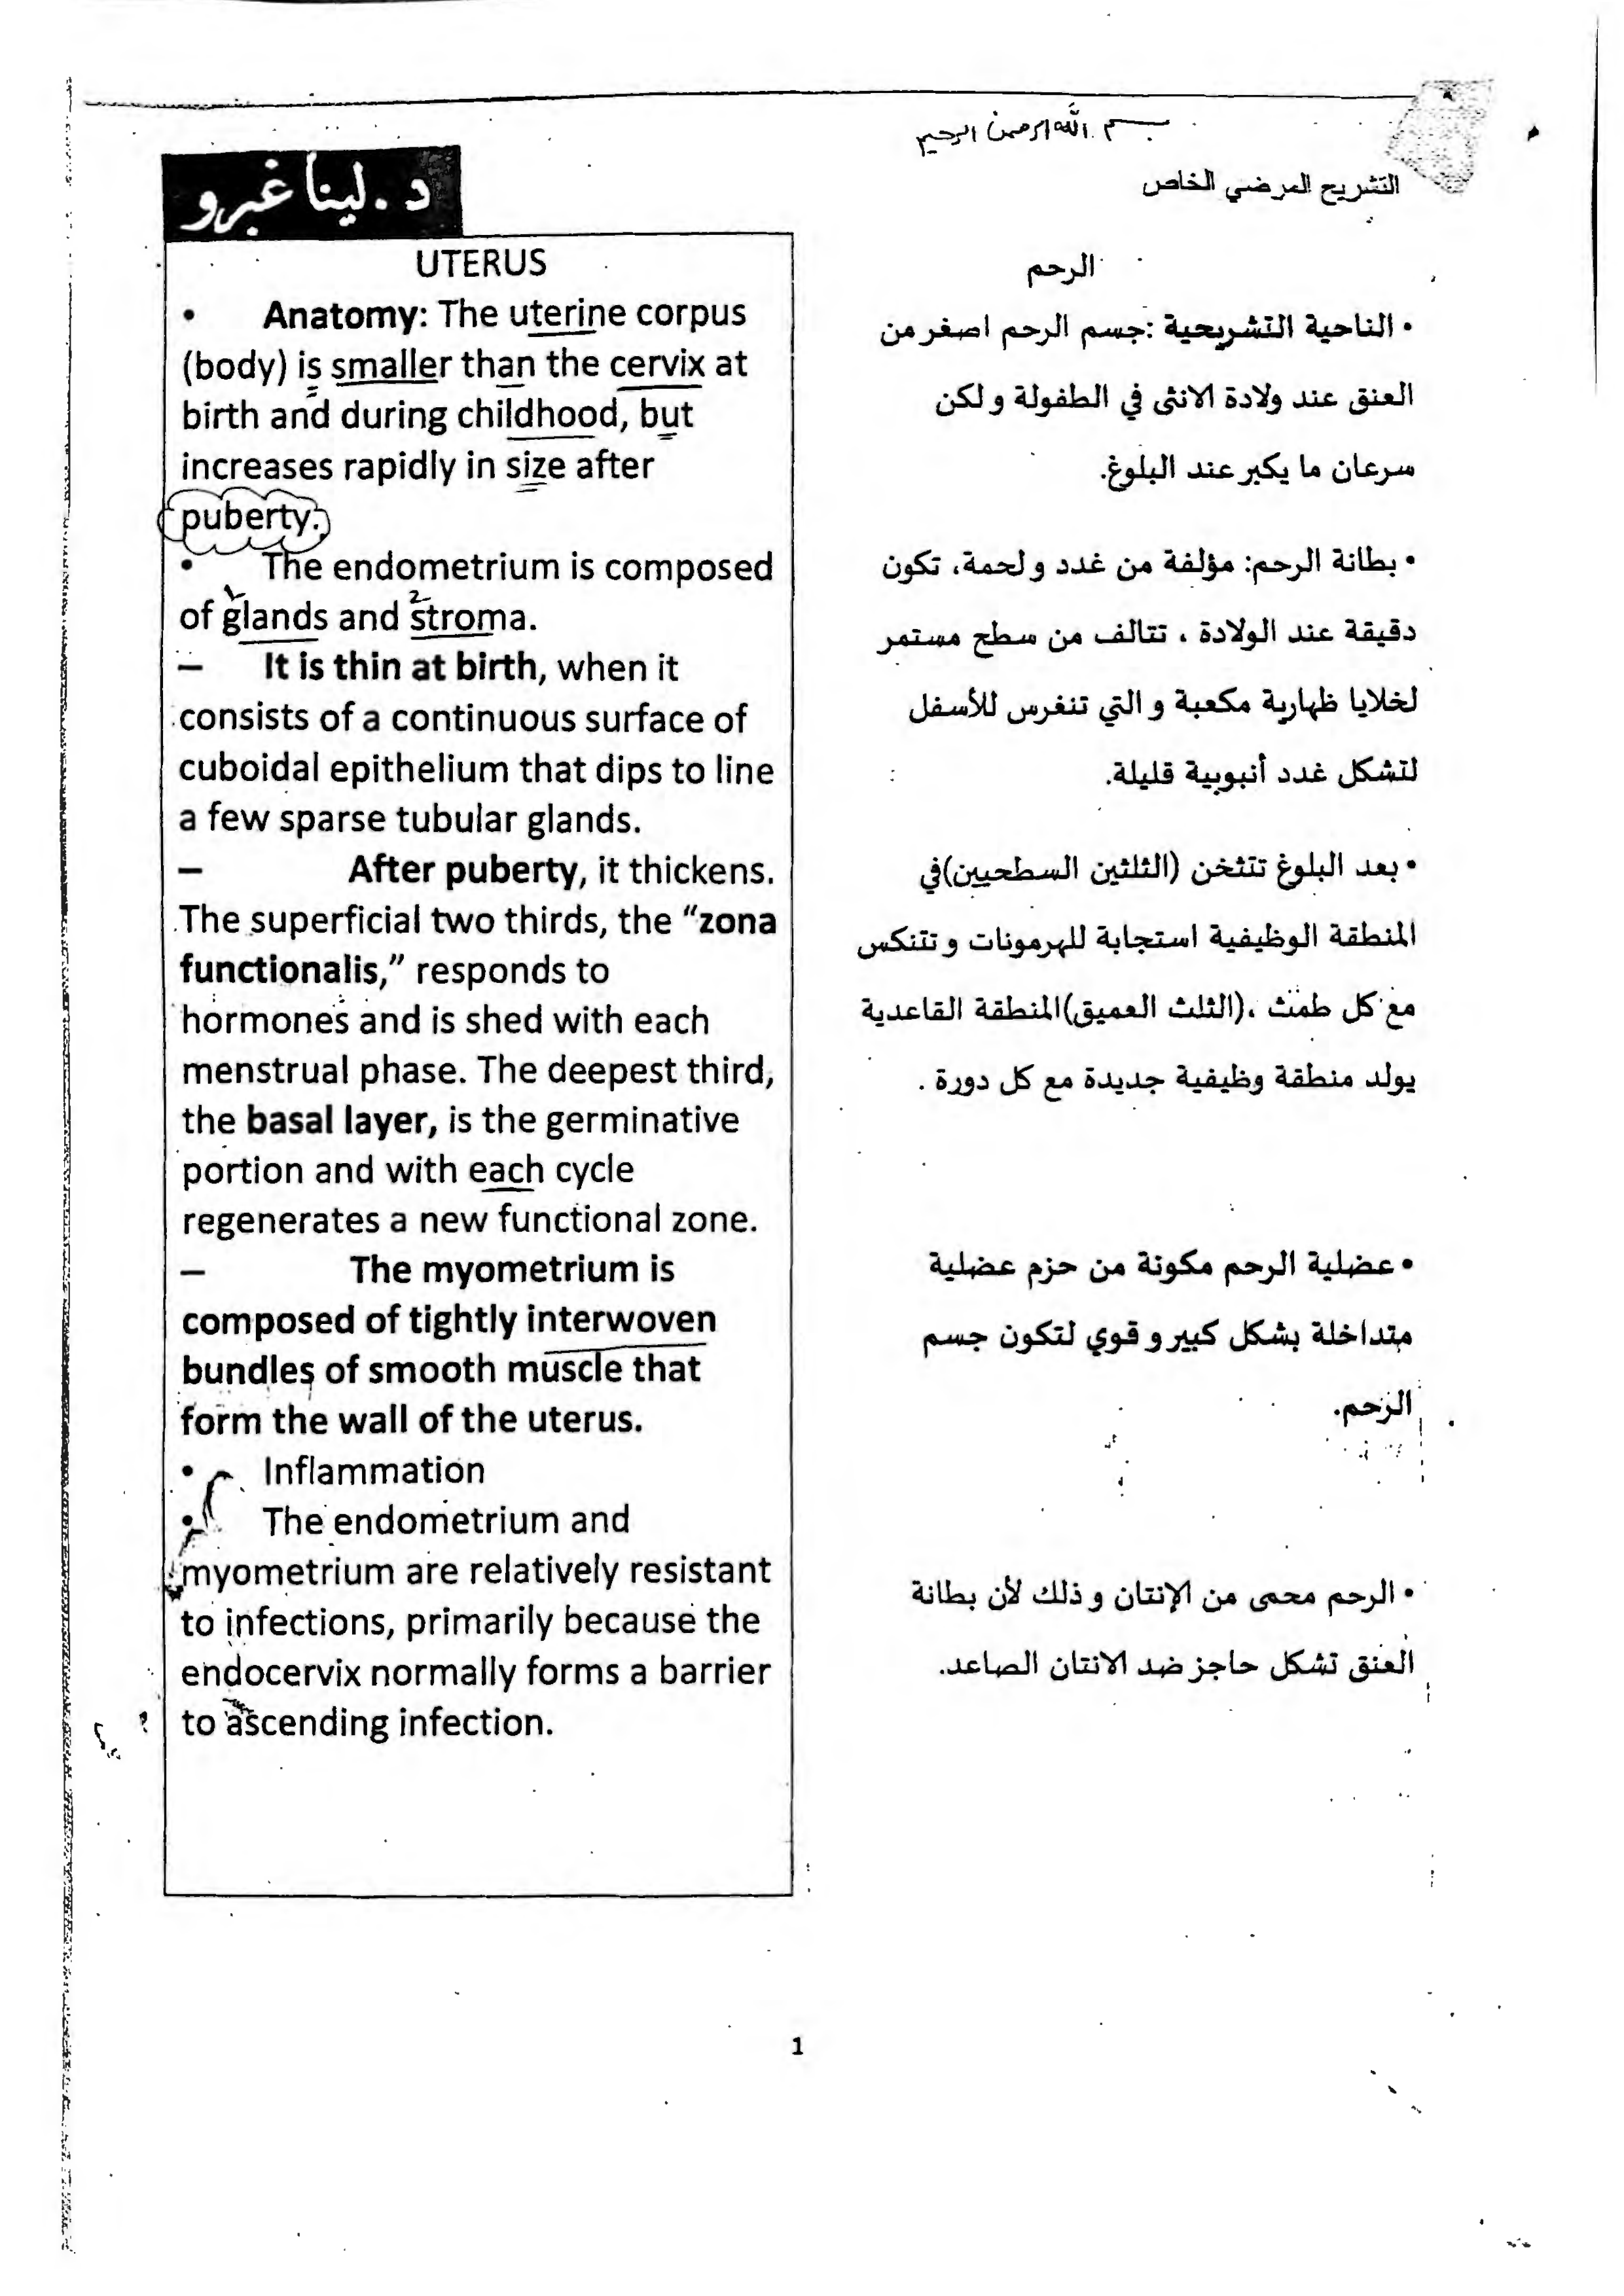 بسم الله الرحمن الرحيم
التشريح المرضي الخاص
د. لينا غبرو
UTERUS
• Anatomy: The uterine corpus
(body) is smaller than the cervix at
birth and during childhood, but
increases rapidly in size after
puberty.
• The endometrium is composed
1 2
of glands and stroma.
– It is thin at birth, when it
consists of a continuous surface of
cuboidal epithelium that dips to line
a few sparse tubular glands.
– After puberty, it thickens.
The superficial two thirds, the “zona
functionalis,” responds to
hormones and is shed with each
menstrual phase. The deepest third,
the basal layer, is the germinative
portion and with each cycle
regenerates a new functional zone.
– The myometrium is
composed of tightly interwoven
bundles of smooth muscle that
form the wall of the uterus.
• Inflammation
• The endometrium and
myometrium are relatively resistant
to infections, primarily because the
endocervix normally forms a barrier
to ascending infection.
الرحم
• الناحية التشريحية :جسم الرحم اصغر من
العنق عند ولادة الانثى في الطفولة و لكن
سرعان ما يكبر عند البلوغ.
• بطانة الرحم: مؤلفة من غدد و لحمة، تكون
دقيقة عند الولادة ، تتالف من سطح مستمر
لخلايا ظهارية مكعبة و التي تنغرس للأسفل
لتشكل غدد أنبوبية قليلة.
• بعد البلوغ تتثخن (الثلثين السطحيين)في
المنطقة الوظيفية استجابة للهرمونات و تتنكس
مع كل طمث ،(الثلث العميق)المنطقة القاعدية
يولد منطقة وظيفية جديدة مع كل دورة .
• عضلية الرحم مكونة من حزم عضلية
متداخلة بشكل كبير و قوي لتكون جسم
الرحم.
• الرحم محمى من الإنتان و ذلك لأن بطانة
العنق تشكل حاجز ضد الانتان الصاعد.
1